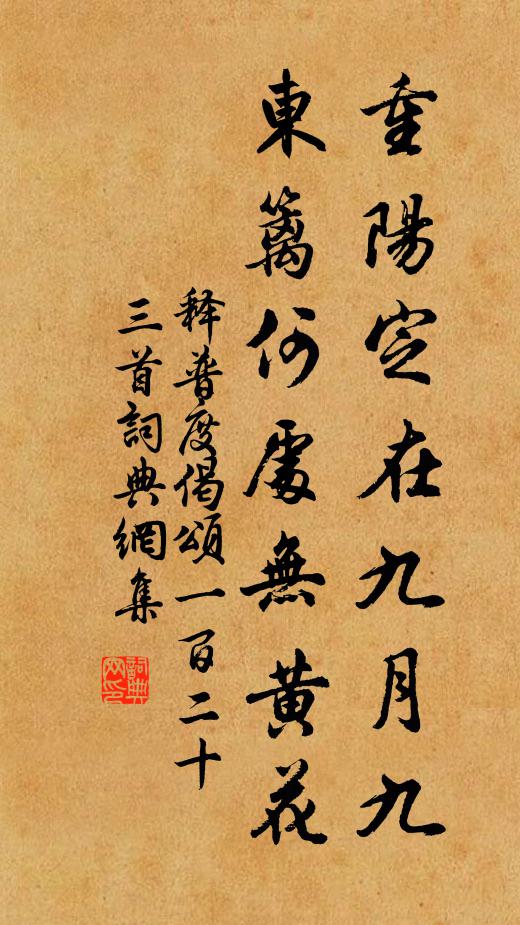 重陽定在九月九
東籬何處無黃花
释普度偈頌一百二十
三首詞典網集
詞典
网印